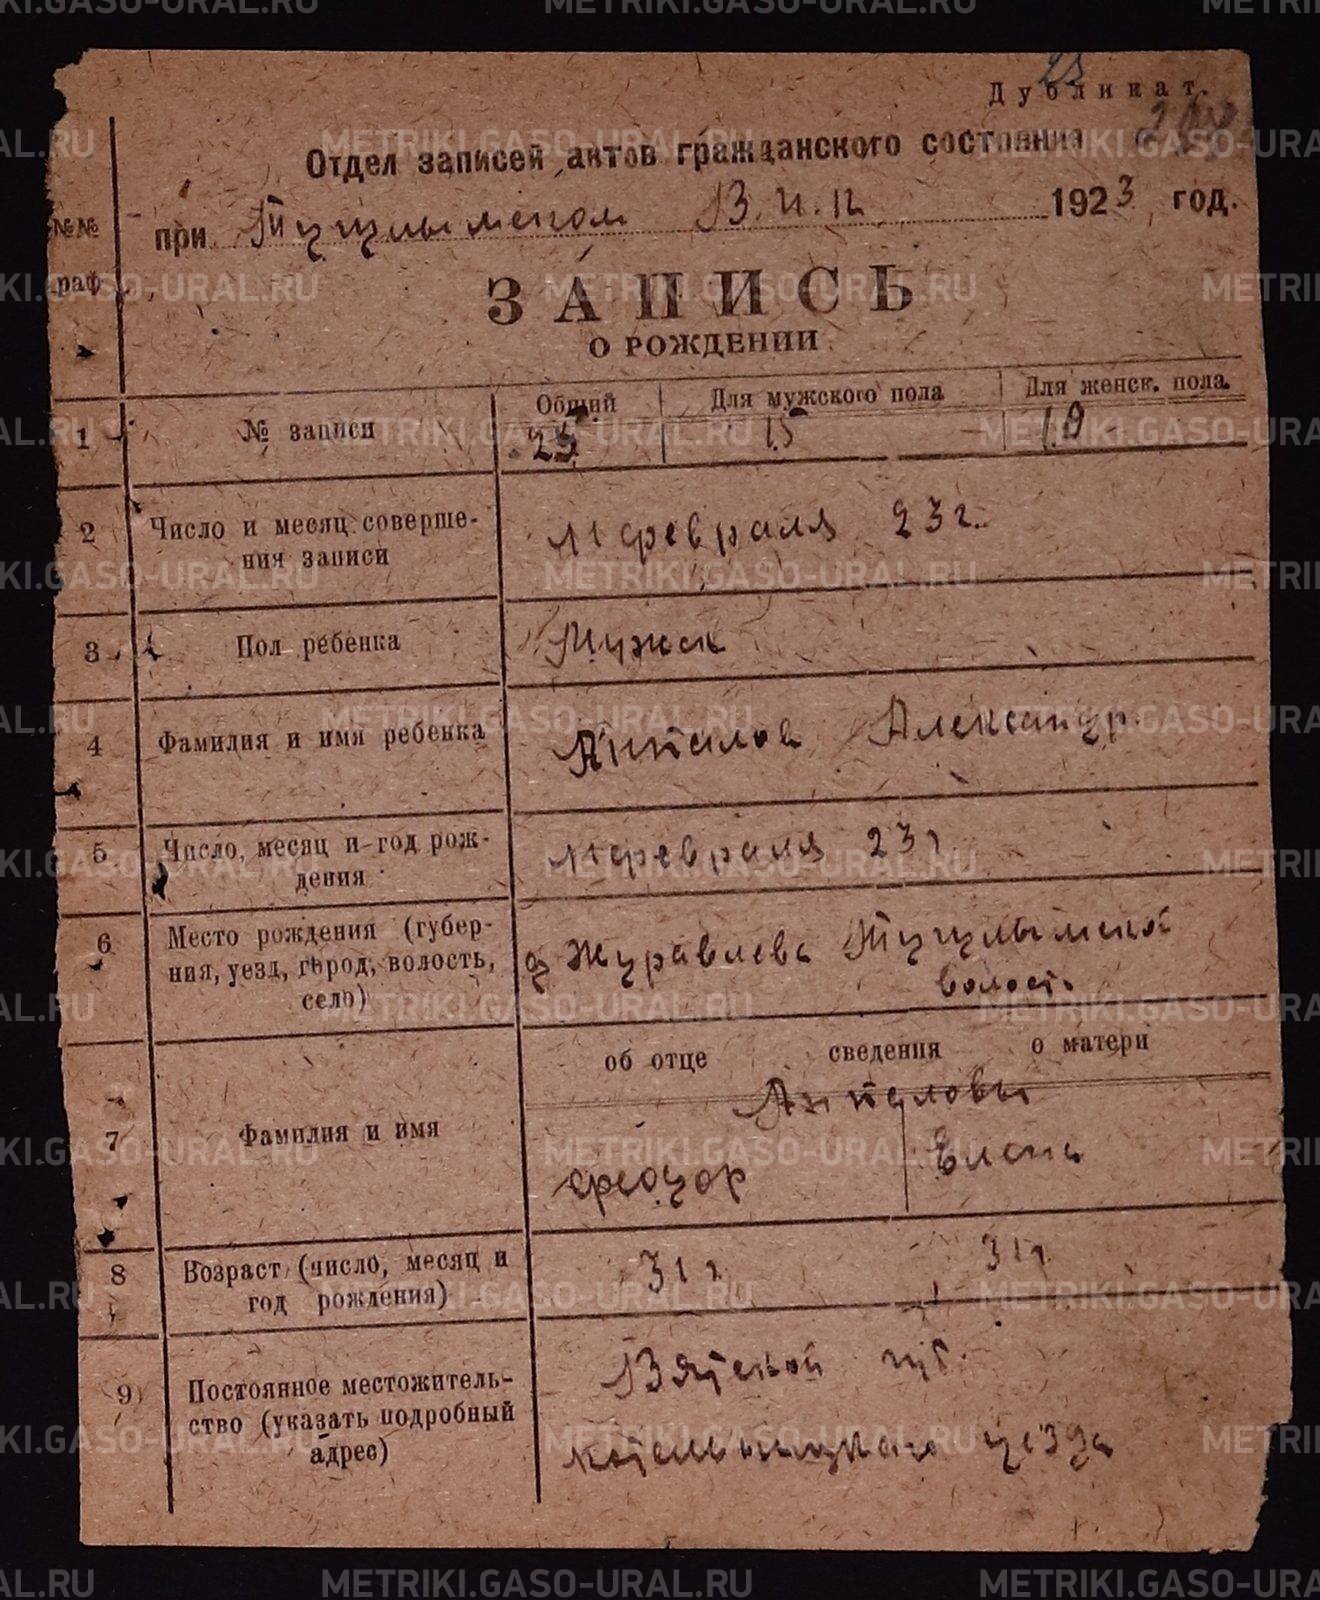 Дубликат.
Отдел записей актов гражданского состояния
при Тугулымском В.И.К 1923 год.
№№
граф
ЗАПИСЬ
О РОЖДЕНИИ
Общий Для мужского пола Для женск. пола
1 № записи 25 15 10
2 Число и месяц соверше-
ния записи
11 февраля 23 г.
3 Пол ребенка Мужск
4 Фамилия и имя ребенка Анталов Александр.
5 Число, месяц и год рож-
дения
11 февраля 23 г
6 Место рождения (губер-
ния, уезд, город, волость,
село)
д Журавлева Тугулымской
волость
об отце сведения о матери
7 Фамилия и имя
Анталовы
Феодор Елена
8 Возраст (число, месяц и
год рождения)
31 г 31 г
9 Постоянное местожитель-
ство (указать подробный
адрес)
Вятской губ.
Котельницкаго уезда
METRIKI.GASO-URAL.RU